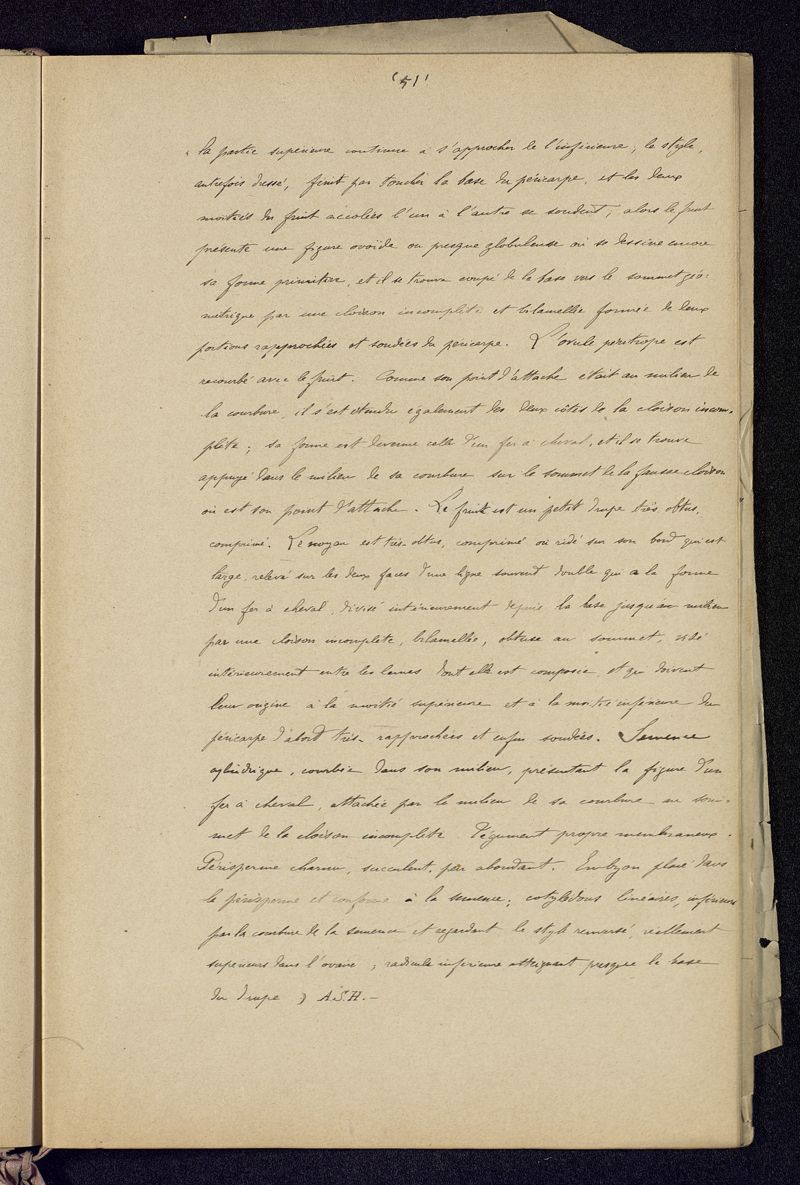 (51)
"la partie supérieure continue à s'approcher de l'inférieure, le style,
autrefois dressé, finit par toucher la base du péricarpe, et les deux
moitiés du fruit accolées l'un à l'autre se soudent; alors le fruit
présente une figure ovoïda ou presque globuleuse où se dessine encore
sa forme primitive, et il se trouve coupé de la base vers le sommet géo-
métrique par une cloison incomplète et bilamellée formée de deux
portions rapprochées et soudées du péricarpe. L'ovule péritrope est
recourbé avec le fruit. Comme son point d'attache était au milieu de
la courbure, il s'est étendu également des deux côtés de la cloison incom-
plète; sa forme est devenue celle d'un fer à cheval, et il se trouve
appuyé dans le milieu de sa courbure sur le sommet de la fausse cloison
où est son point d'attache. Le fruit est un petit drupe très obtus,
comprimé. Le noyau est très-obtus, comprimé ou ridé sur son bord qui est
large, relevé sur les deux faces d'une ligne souvent double qui a la forme
d'un fer à cheval, divisé intérieurement depuis la base jusqu'au milieu
par une cloison incomplète, bilamellée, obtuse au sommet, vide
intérieurement entre les lames dont elle est composée, et qui doivent
leur origine à la moitié supérieure et à la moitié inférieure du
péricarpe d'abord très-rapprochées et enfin soudées. Semence
cylindrique, courbée dans son milieu, présentant la figure d'un
fer à cheval, attachée par le milieu de sa courbure au som-
met de la cloison incomplète. Tégument propre membraneux.
Périsperme charnu, succulent, peu abondant. Embryon placé dans
le périsperme et conforme à la semence; cotylédons linéaires, inférieurs
par la courbure de la semence et regardant le style renversé, réellement
supérieurs dans l'ovaire; radicule inférieure atteignant presque la base
du drupe) A.S.H.-